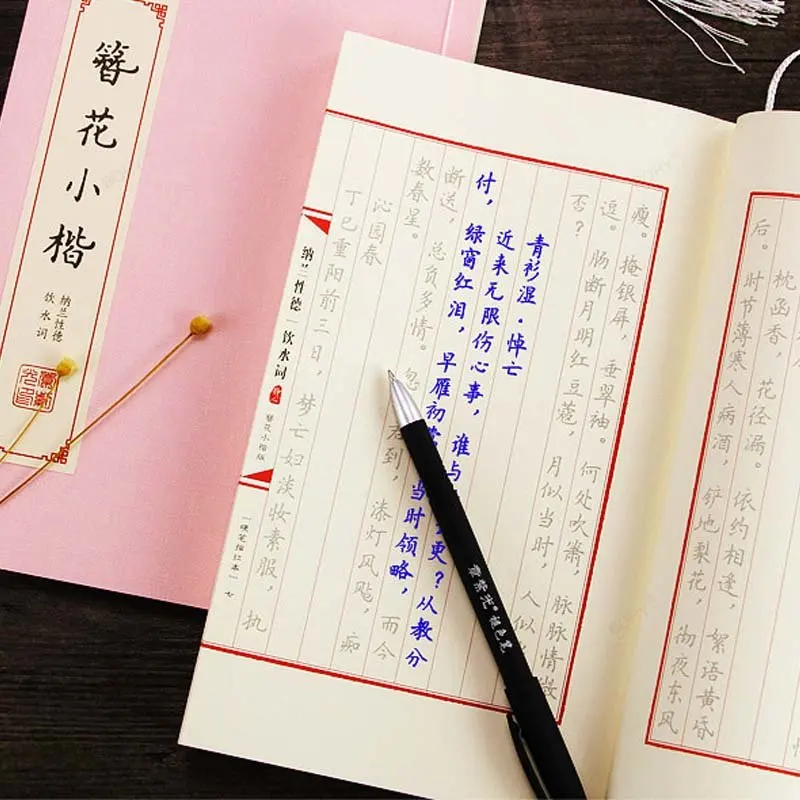 簪花小楷
纳兰性德
饮水词
枕函香，花径漏。依约相逢，絮语黄昏
后。时节薄寒人病酒，铲地梨花，彻夜东风
瘦。掩银屏，垂翠袖。何处吹箫，脉脉情微
逗。肠断月明红豆蔻，月似当时，人似
否？
青衫湿·悼亡
近来无限伤心事，谁与更？从教分
付，绿窗红泪，早雁初当时领略，而今
断送，总负多情。忽君到，漆灯风飐，痴
数春星。
沁园春
丁巳重阳前三日，梦亡妇淡妆素服，执
纳兰性德 | 饮水词
簪花小楷版
「硬笔描红本」 七
紫光® 褪色笔